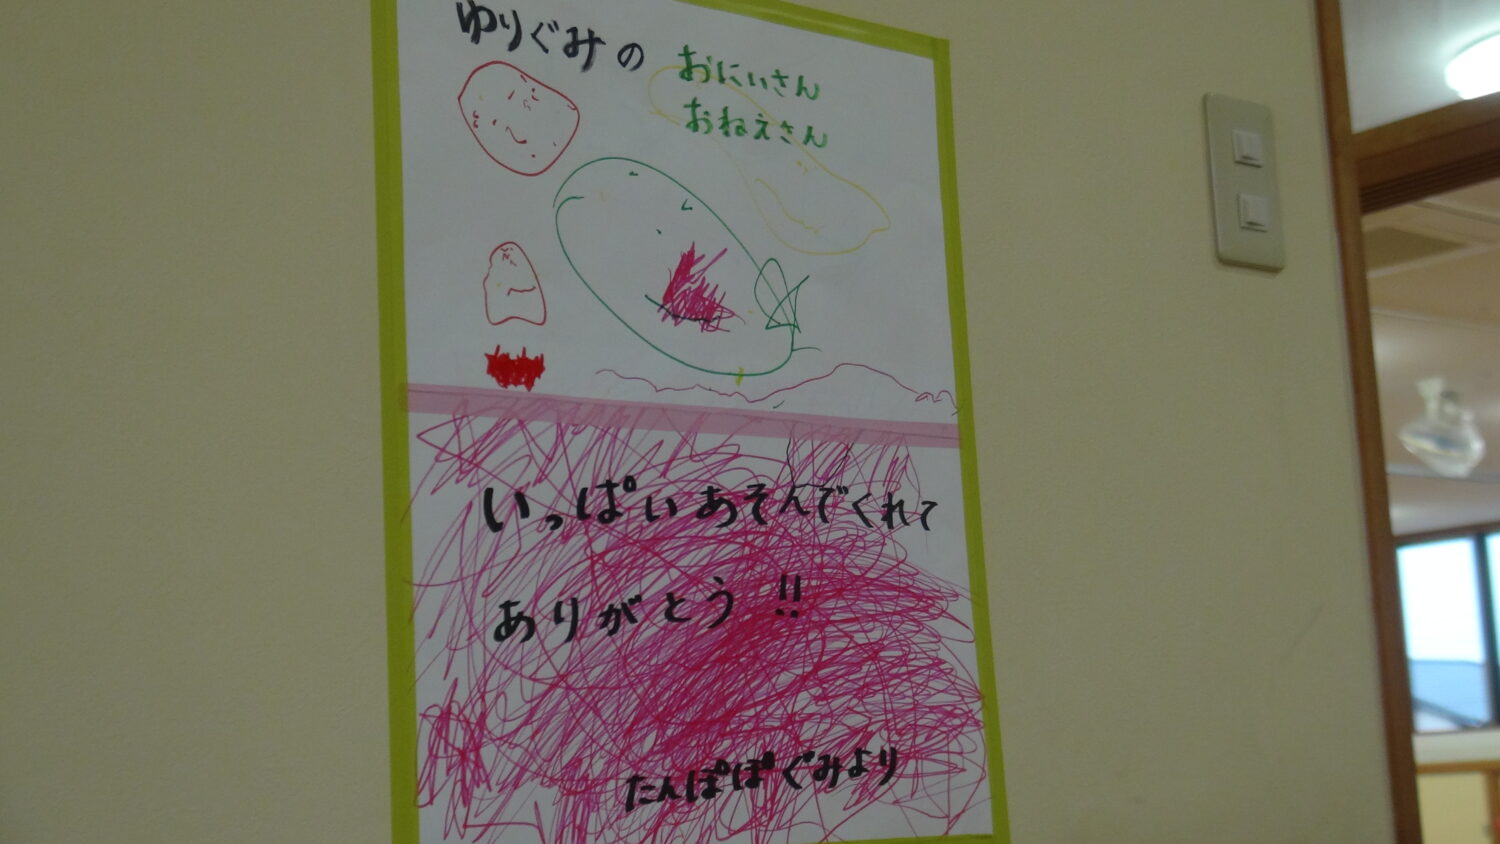 ゆりぐみの
おにいさん
おねえさん
いっぱいあそんでくれて
ありがとう!!
たんぽぽぐみより